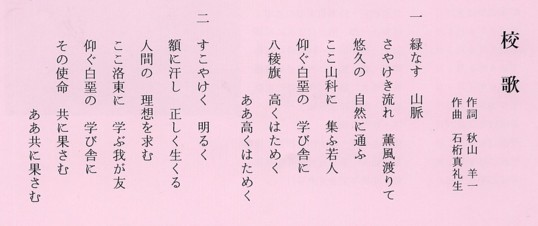 校歌
作詞 秋山 羊一
作曲 石桁真礼生
一 緑なす 山脈
さやけき流れ 薫風渡りて
悠久の 自然に通ふ
ここ山科に 集ふ若人
仰ぐ白堊の 学び舎に
八稜旗 高くはためく
ああ高くはためく
二 すこやけく 明るく
額に汗し 正しく生くる
人間の 理想を求む
ここ洛東に 学ぶ我が友
仰ぐ白堊の 学び舎に
その使命 共に果さむ
ああ共に果さむ